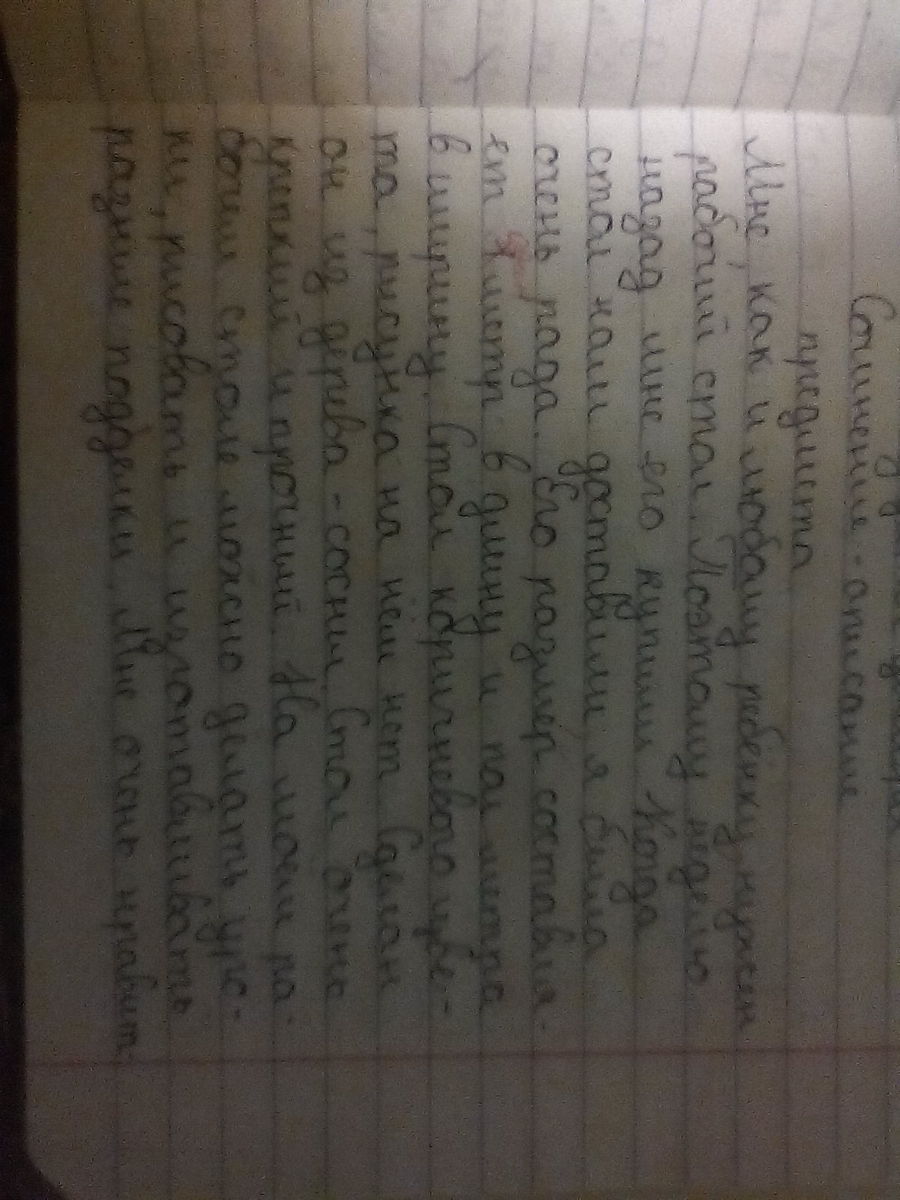 Сочинение-описание
предмета
Мне, как и любому ребёнку, нужен
рабочий стол. Поэтому неделю
назад мне его купили. Когда
стол нам доставили, я была
очень рада. Его размер составля-
ет метр в длину и пол метра
в ширину. Стол коричневого цве-
та, рисунка на нём нет. Сделан
он из дерева - сосны. Стол очень
крепкий и прочный. На моём ра-
бочем столе можно делать уро-
ки, рисовать и изготавливать
разные подделки. Мне очень нравит-